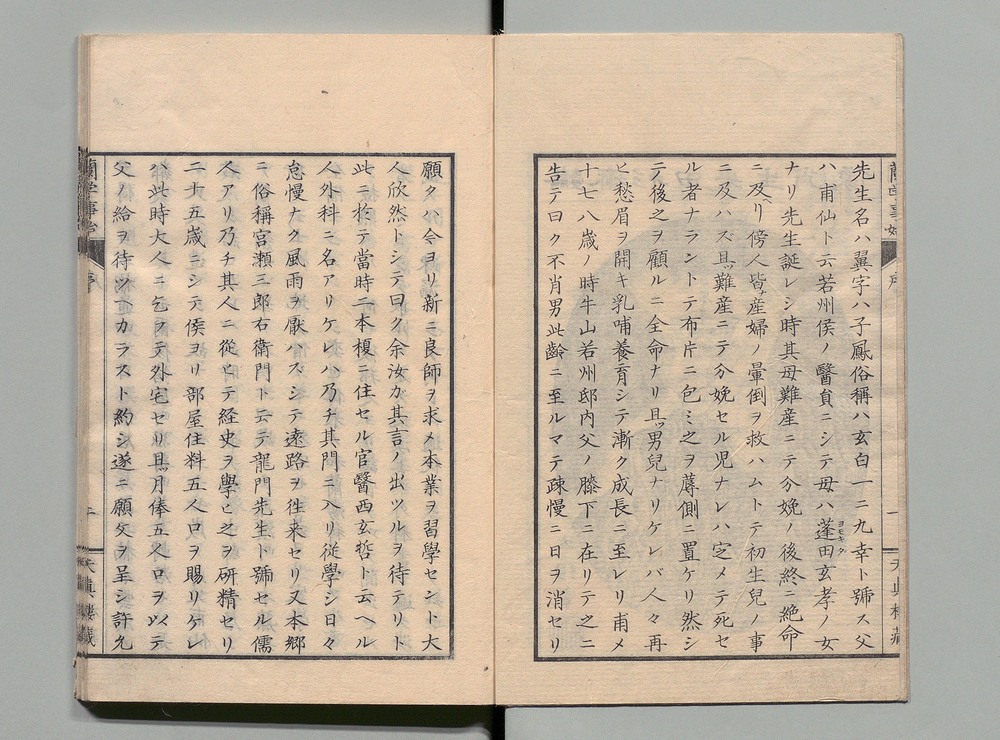 先生名ハ翼字ハ子鳳俗稱ハ玄白一ニ九幸ト號ス父
ハ甫仙ト云若州侯ノ醫員ニシテ母ハ蓬田玄孝ノ女
ヨモキタ
ナリ先生誕レシ時其母難産ニテ分娩ノ後終ニ絶命
ニ及ヘリ傍人皆産婦ノ暈倒ヲ救ハムトテ初生兒ノ事
ニ及ハズ且難産ニテ分娩セル児ナレハ定メテ死セ
ル者ナラントテ布片ニ包ミ之ヲ蓐側ニ置ケリ然シ
テ後之ヲ顧ルニ全命ナリ且男兒ナリケレバ人々再
ヒ愁眉ヲ開キ乳哺養育シテ漸ク成長ニ至レリ甫メ
十七八歳ノ時牛山若州邸内父ノ膝下ニ在リテ之ニ
告テ曰ク不肖男此齢ニ至ルマテ疎慢ニ日ヲ消セリ
序
一
天真樓藏
願クハ今ヨリ新ニ良師ヲ求メ本業ヲ習學セント大
人欣然トシテ曰ク余汝カ其言ノ出ツルヲ待テリト
此ニ於テ當時二本榎ニ住セル官醫西玄哲ト云ヘル
人外科ニ名アリケレハ乃チ其門ニ入リ従學シ日々
怠慢ナク風雨ヲ厭ハスシテ遠路ヲ徃来セリ又本郷
ニ俗稱宮瀬三郎右衛門ト云テ龍門先生ト號セル儒
人アリ乃チ其人ニ從ヒテ経史ヲ學ヒ之ヲ研精セリ
二十五歳ニシテ侯ヨリ部屋住料五人口ヲ賜リケレ
ハ此時大人ニ乞フテ外宅セリ且月俸五人口ヲ以テ
父ノ給ヲ待ツヘカラスト約シ遂ニ願文ヲ呈シ許允
蘭学事始
序
二
天真樓藏